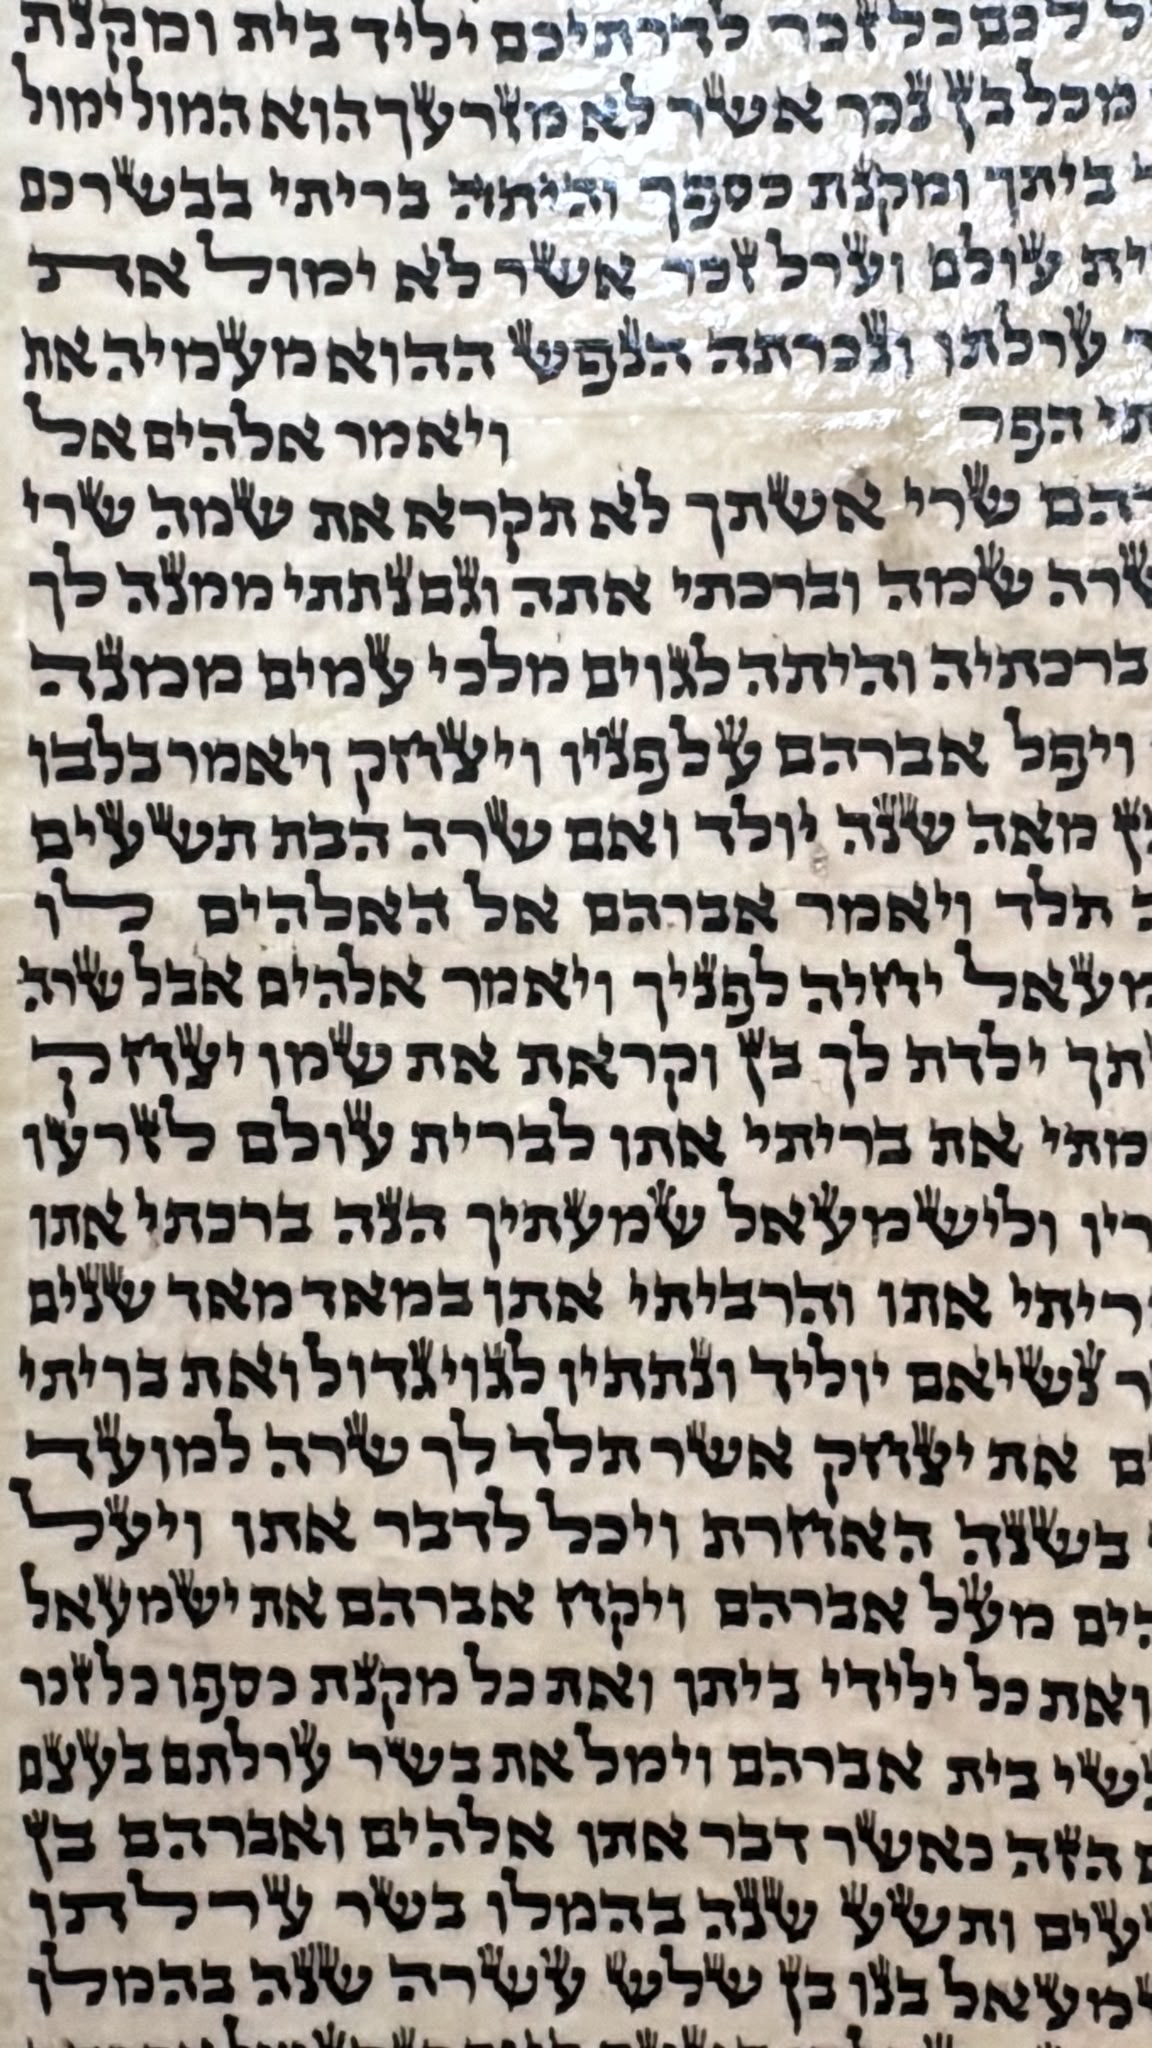 לכם כל זכר לדרתיכם יליד בית ומקנת
מכל בן נכר אשר לא מזרעך הוא המול ימול
ביתך ומקנת כספך והיתה בריתי בבשרכם
עולם וערל זכר אשר לא ימול את
ערלתו ונכרתה הנפש ההוא מעמיה את
הפר ויאמר אלהים אל
שרי אשתך לא תקרא את שמה שרי
שרה שמה וברכתי אתה וגם נתתי ממנה לך
ברכתיה והיתה לגוים מלכי עמים ממנה
ויפל אברהם על פניו ויצחק ויאמר בלבו
מאה שנה יולד ואם שרה הבת תשעים
תלד ויאמר אברהם אל האלהים לו
יחיה לפניך ויאמר אלהים אבל שרה
ילדת לך בן וקראת את שמו יצחק
את בריתי אתו לברית עולם לזרעו
ולישמעאל שמעתיך הנה ברכתי אתו
אתו והרביתי אתו במאד מאד שנים
נשיאם יוליד ונתתיו לגוי גדול ואת בריתי
את יצחק אשר תלד לך שרה למועד
בשנה האחרת ויכל לדבר אתו ויעל
מעל אברהם ויקח אברהם את ישמעאל
ואת כל ילידי ביתו ואת כל מקנת כספו כל זכר
בית אברהם וימל את בשר ערלתם בעצם
הזה כאשר דבר אתו אלהים ואברהם בן
ותשע שנה בהמלו בשר ערלתו
בנו בן שלש עשרה שנה בהמלו